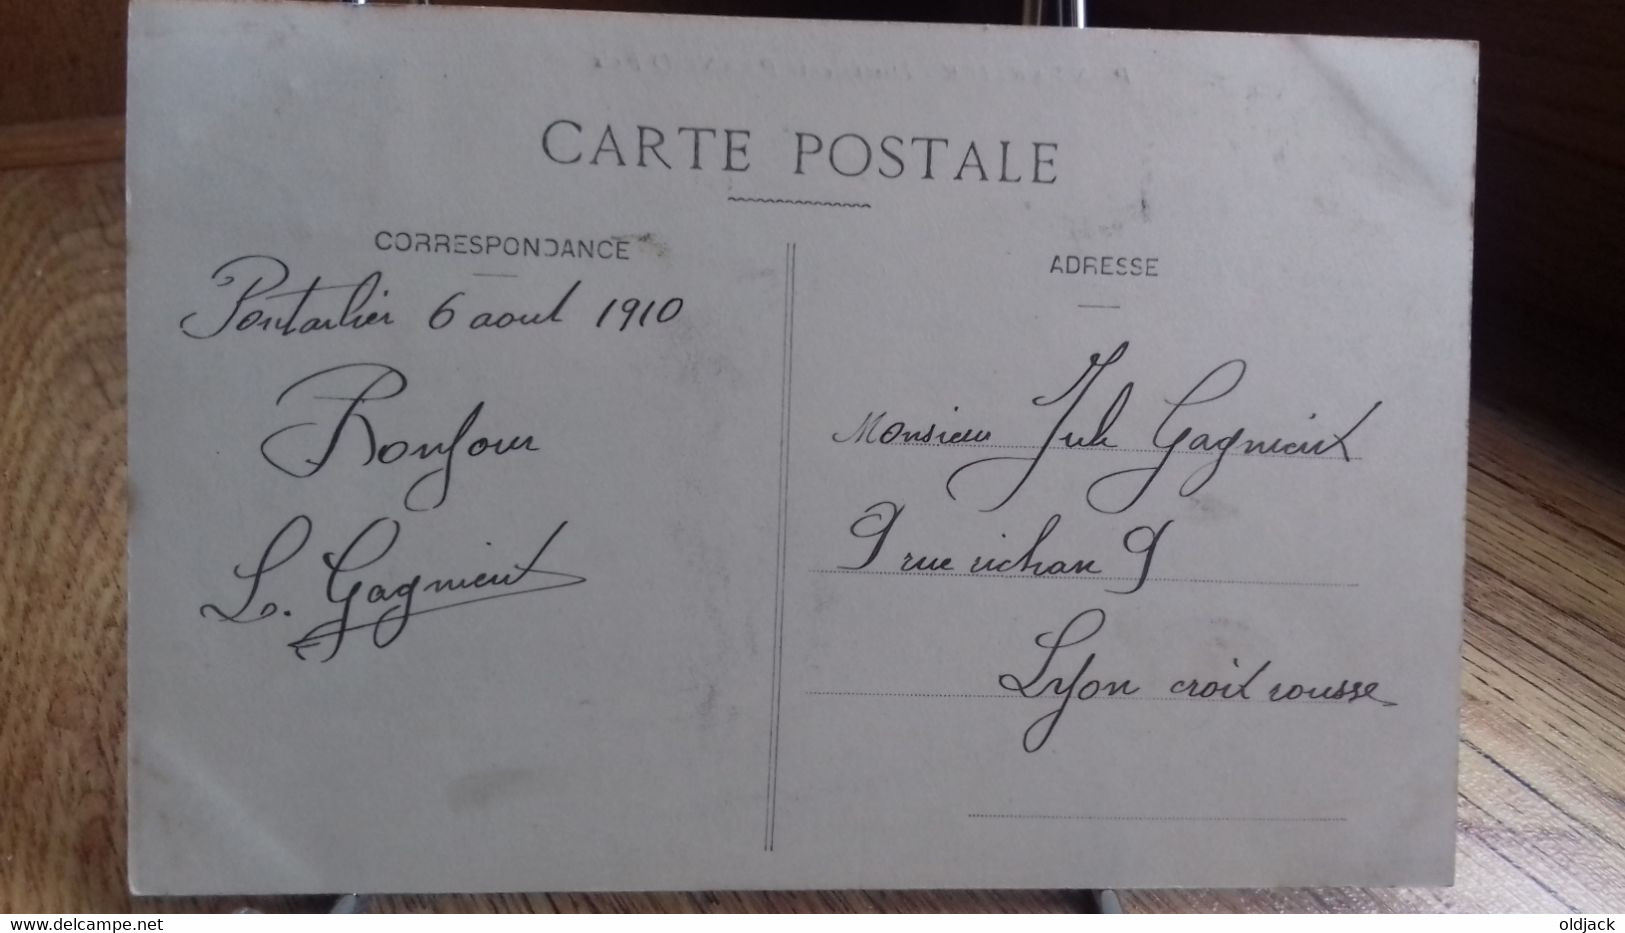 CARTE POSTALE
CORRESPONDANCE
Pontarlier 6 aout 1910
Bonjour
L. Gagnieux
ADRESSE
Monsieur Jule Gagnieux
9 rue richan 9
Lyon croix rousse
oldjack